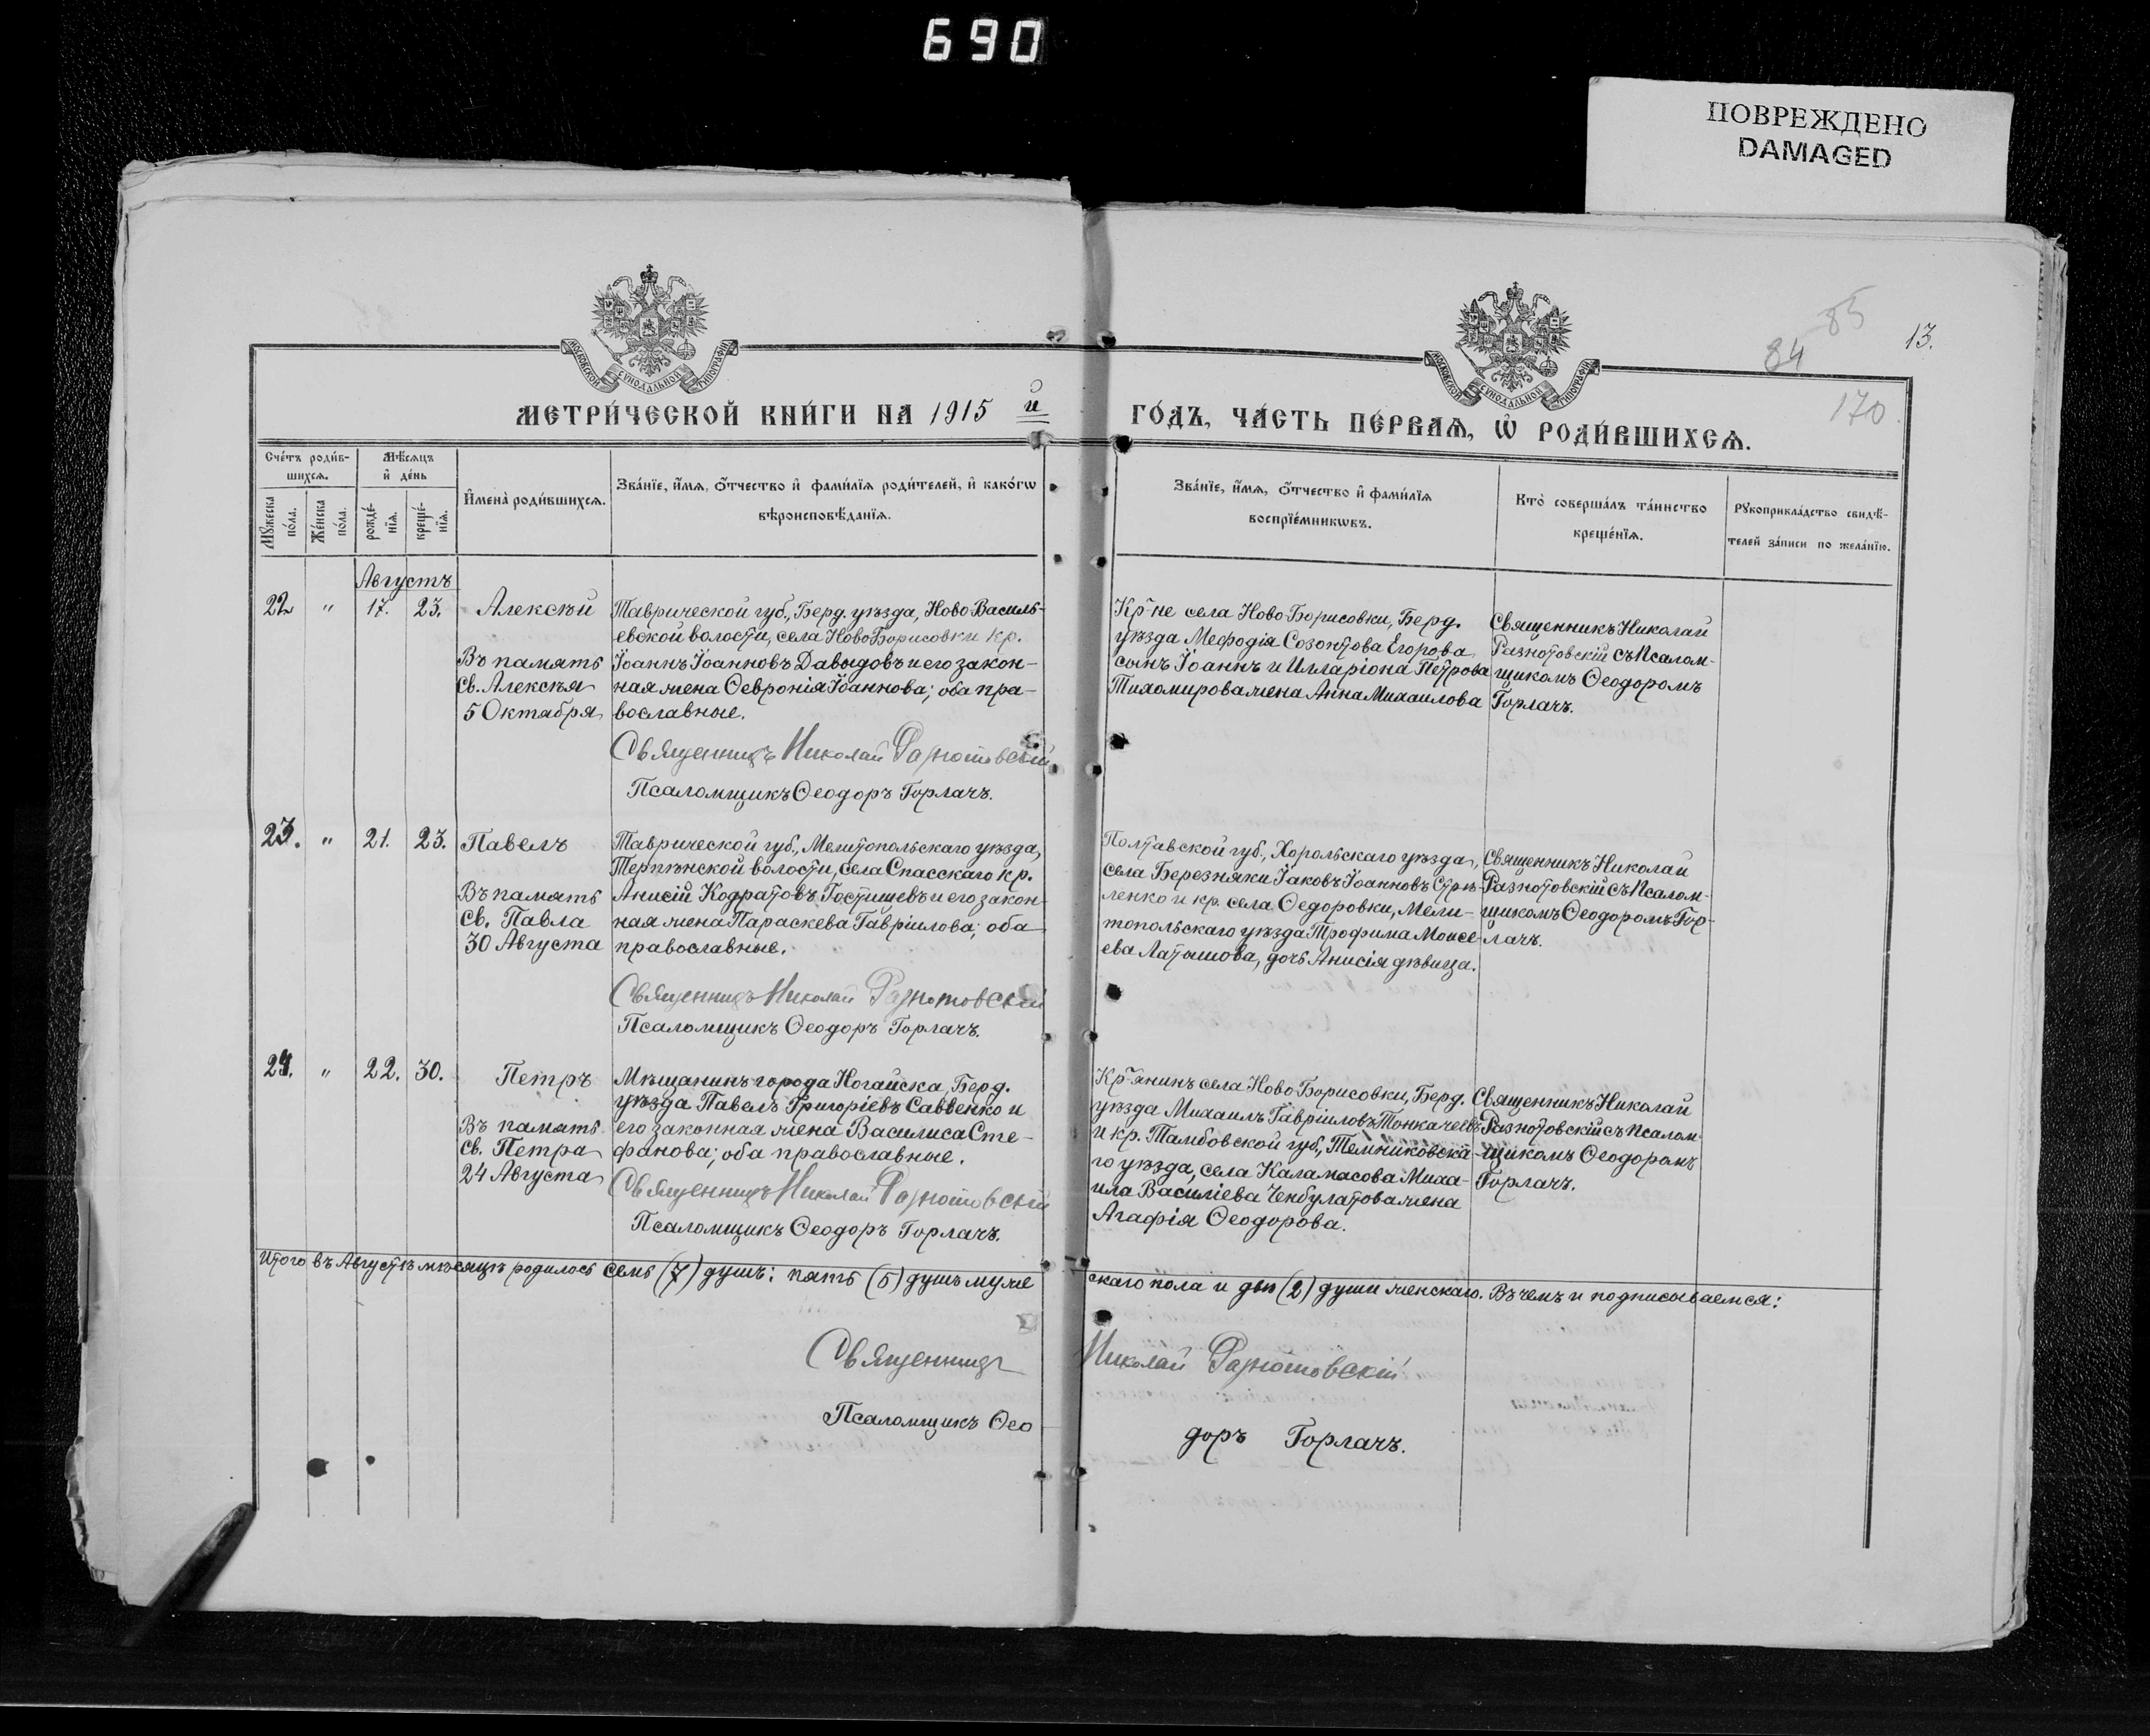 690
ПОВРЕЖДЕНО
DAMAGED
МОСКОВСКОЙ СѴНОДАЛЬНОЙ ТИПОГРАФІИ
МОСКОВСКОЙ СѴНОДАЛЬНОЙ ТИПОГРАФІИ
85
84
13.
170.
МЕТРИ́ЧЕСКОЙ КНИ́ГИ НА 1915 й
ГО́ДЪ, ЧА́СТЬ ПЕ́РВАѦ, Ѡ҆ РОДИ́ВШИХСѦ.
Сче́тъ роди́в-
шихсѧ.
Мꙋ́жеска по́ла.
Же́нска по́ла.
Мѣ́сѧцъ
и҆ де́нь
рожде́-
нїѧ.
креще́-
нїѧ.
И҆мена̀ роди́вшихсѧ.
Зва́нїе, и҆́мѧ, ѻ҆́тчество и҆ фами́лїѧ роди́телей, и҆ како́гѡ
вѣроисповѣ́данїѧ.
Зва́нїе, и҆́мѧ, ѻ҆́тчество и҆ фами́лїѧ
воспрїе́мникѡвъ.
Кто̀ соверша́лъ та́инство
креще́нїѧ.
Рꙋкоприкла́дство свидѣ́-
телей за́писи по жела́нїю.
Августъ
22 " 17. 23. Алексѣй
Въ память
Св. Алексѣя
5 Октября
Таврической губ., Берд. уѣзда, Ново-Василь-
евской волости, села НовоБорисовки кр.
Іоаннъ Іоанновъ Давыдовъ и его закон-
ная жена Ѳевронія Іоаннова; оба пра-
вославные.
Священникъ Николай Разнотовскій
Псаломщикъ Ѳеодоръ Горлачъ.
Кр-не села Ново-Борисовки, Берд.
уѣзда Меѳодія Созонтова Егорова
сынъ Іоаннъ и Илларіона Петрова
Тихомирова жена Анна Михаилова
Священникъ Николай
Разнотовскій съ Псалом-
щикомъ Ѳеодоромъ
Горлачъ.
23. " 21. 23. Павелъ
Въ память
Св. Павла
30 Августа
Таврической губ., Мелитопольскаго уѣзда,
Терпѣнской волости, села Спасскаго кр.
Анисій Кодратовъ Гостищевъ и его закон-
ная жена Параскева Гавріилова; оба
православные.
Священникъ Николай Разнотовскій
Псаломщикъ Ѳеодоръ Горлачъ.
Полтавской губ., Хорольскаго уѣзда,
села Березняки Іаковъ Іоанновъ Стрѣ-
ленко и кр. села Ѳедоровки, Мели-
топольскаго уѣзда Трофима Моисе-
ева Латышова, дочь Анисія дѣвица.
Священникъ Николай
Разнотовскій съ Псалом-
щикомъ Ѳеодоромъ Гор-
лачъ.
24. " 22. 30. Петръ
Въ память
Св. Петра
24 Августа
Мѣщанинъ города Ногайска, Берд.
уѣзда Павелъ Григоріевъ Савенко и
его законная жена Василиса Сте-
фанова; оба православные.
Священникъ Николай Разнотовскій
Псаломщикъ Ѳеодоръ Горлачъ.
Кр-янинъ села Ново-Борисовки, Берд.
уѣзда Михаилъ Гавріиловъ Тонкачеевъ
и кр. Тамбовской губ., Темниковска-
го уѣзда, села Каламасова Миха-
ила Василіева Ченбулатова жена
Агафія Ѳеодорова.
Священникъ Николай
Разнотовскій съ Псалом-
щикомъ Ѳеодоромъ
Горлачъ.
Итого въ Августѣ мѣсяцѣ родилось семь (7) душъ: пять (5) душъ муже
скаго пола и двѣ (2) души женскаго. Въ чемъ и подписываемся:
Священникъ Николай Разнотовскій
Псаломщикъ Ѳео
доръ Горлачъ.